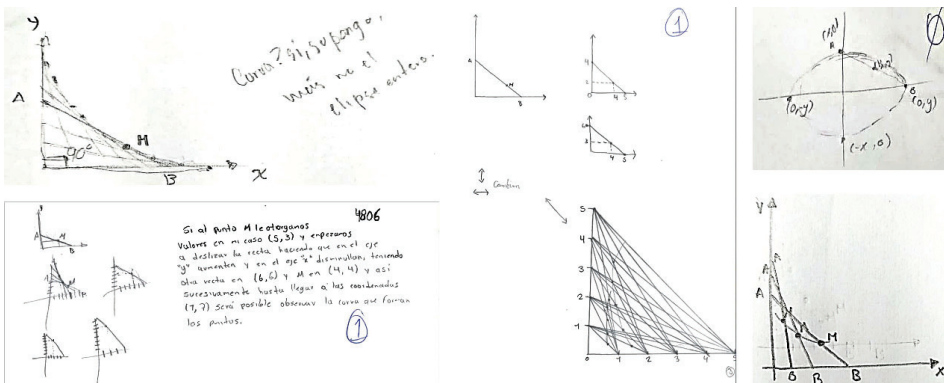 y
A
90°
M
B
x
Curva? si, supongo,
más no el
elipse entero.
4806
Si al punto M le otorgamos
valores en mi caso (5,3) y empezamos
a deslizar la recta haciendo que en el eje
"y" aumenten y en el eje "x" disminullan, teniendo
otra recta en (6,6) y M en (4,4) y así
sucesivamente hasta llegar a las coordenadas
(7,7) será posible observar la curva que forman
los puntos.
1
A
M
B
1
A
M
B
4
0
4
5
3
4
5
5
4
3
2
1
0
1
2
3
4
5
A
B
(0,y)
(0,y)
(-x,0)
Y
A
A
M
B
B
B
X